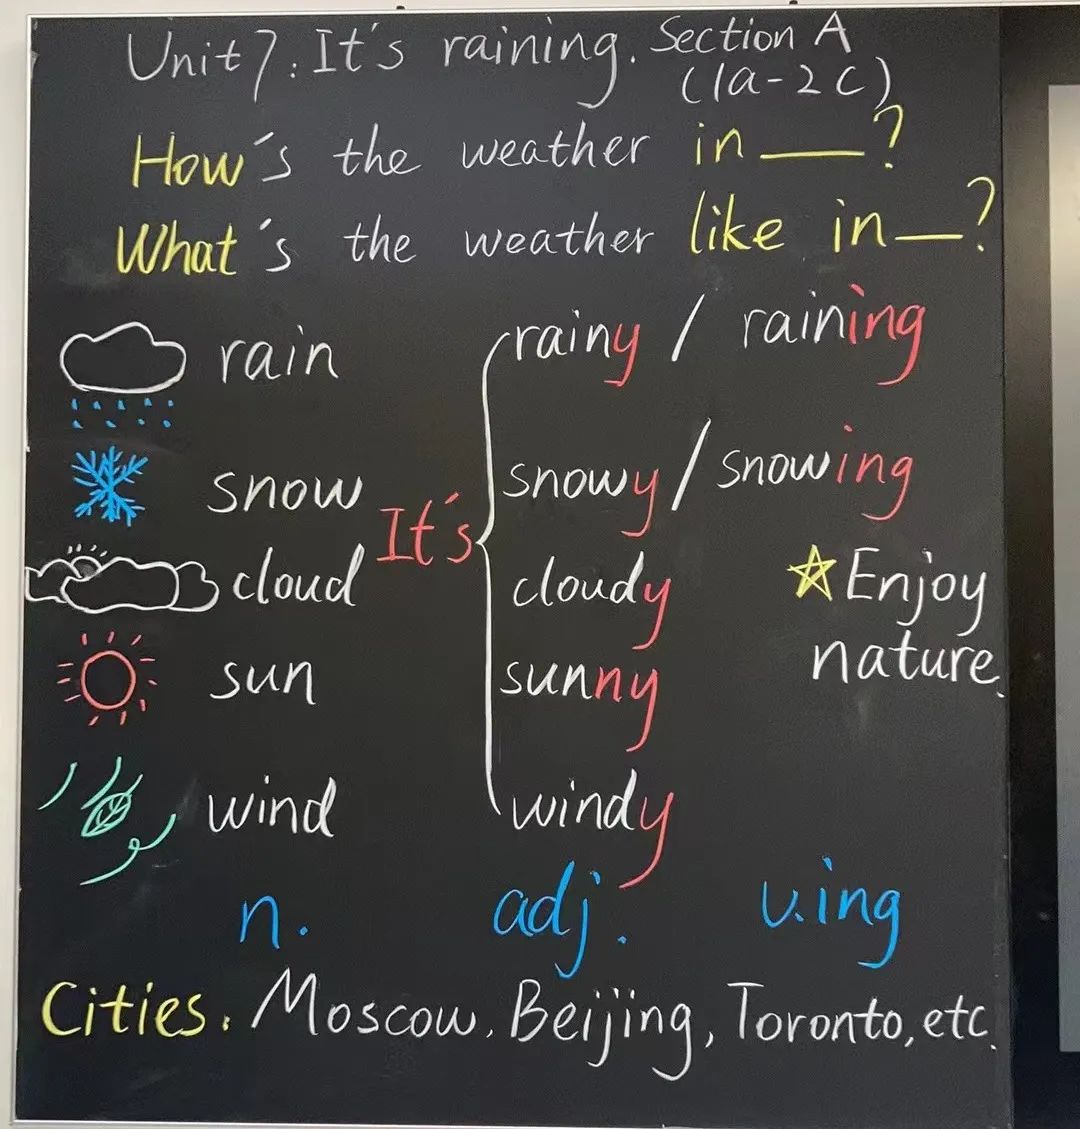 Unit 7: It's raining. Section A
(1a-2c)
How's the weather in ___?
What's the weather like in __?
rain rainy / raining
snow It's snowy / snowing
cloud cloudy ☆ Enjoy
sun sunny nature.
wind windy
n. adj. v.ing
Cities. Moscow, Beijing, Toronto, etc.